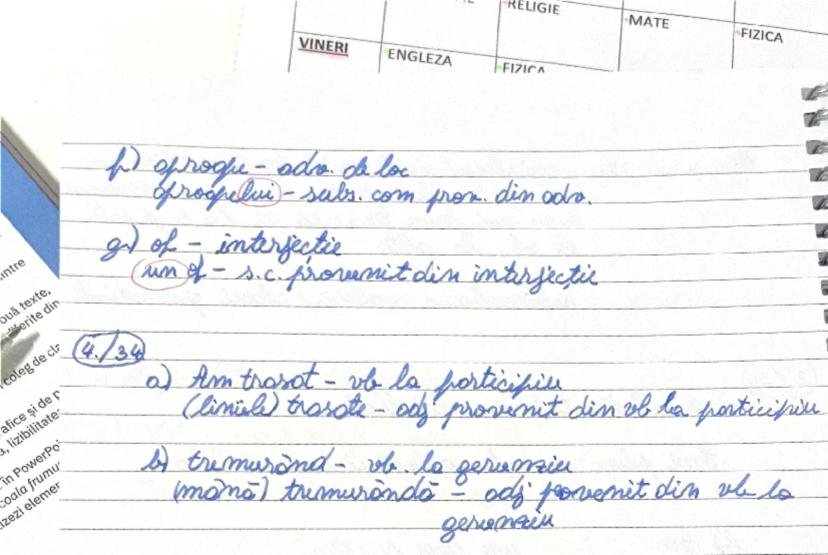 RELIGIE
MATE
FIZICA
VINERI
ENGLEZA
FIZICA
f.) aproape - adv. de loc
aproapelui - subs. com prov. din adv.
g.) of - interjecție
un of - s.c. provenit din interjecție
4./34
a) Am trasat - vb la participiu
(liniile) trasate - adj provenit din vb la participiu
b) tremurând - vb. la gerunziu
(mână) tremurândă - adj provenit din vb la
gerunziu
ouă texte,
coleg de cla
afice și de p
, lizibilitate
în PowerPo
coala frumu